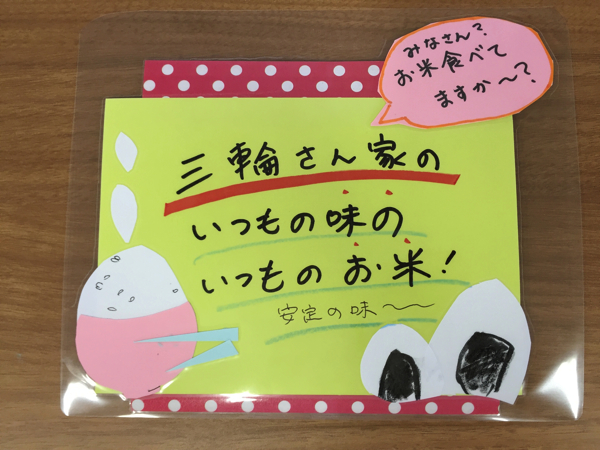 みなさん?
お米食べて
ますか〜?
三輪さん家の
いつもの味の
いつものお米!
安定の味〜〜